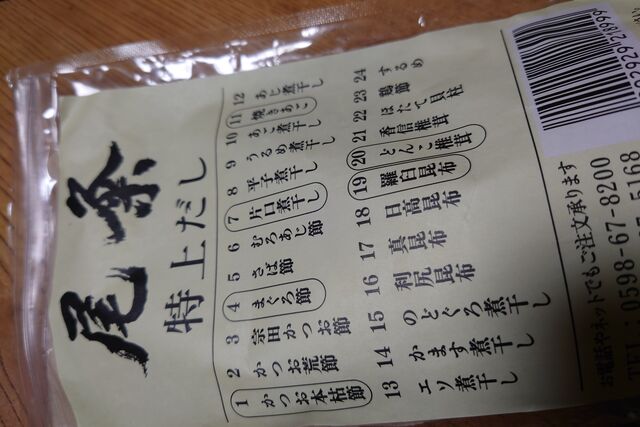 尾粂
特上だし
1 かつお本枯節
2 かつお荒節
3 宗田かつお節
4 まぐろ節
5 さば節
6 むろあじ節
7 片口煮干し
8 平子煮干し
9 うるめ煮干し
10 あご煮干し
11 焼きあご
12 あじ煮干し
13 エソ煮干し
14 かます煮干し
15 のどぐろ煮干し
16 利尻昆布
17 真昆布
18 日高昆布
19 羅臼昆布
20 どんこ椎茸
21 香信椎茸
22 ほたて貝柱
23 鶏節
24 するめ
お電話やネットでもご注文承ります
TEL:0598-67-8200
5168